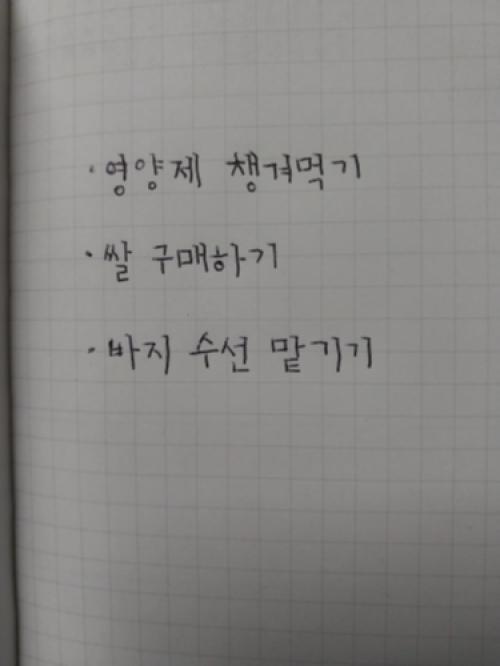 · 영양제 챙겨먹기
· 쌀 구매하기
· 바지 수선 맡기기